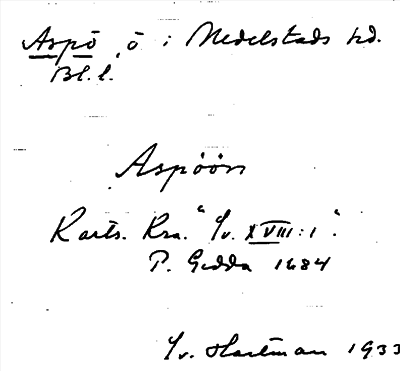 Aspö, ö i Medelstads hd.
Bl. l.
Aspöön
Karts. Kra. "Sv. XVIII:1".
P. Gedda 1684
Sv. Hartman 1933